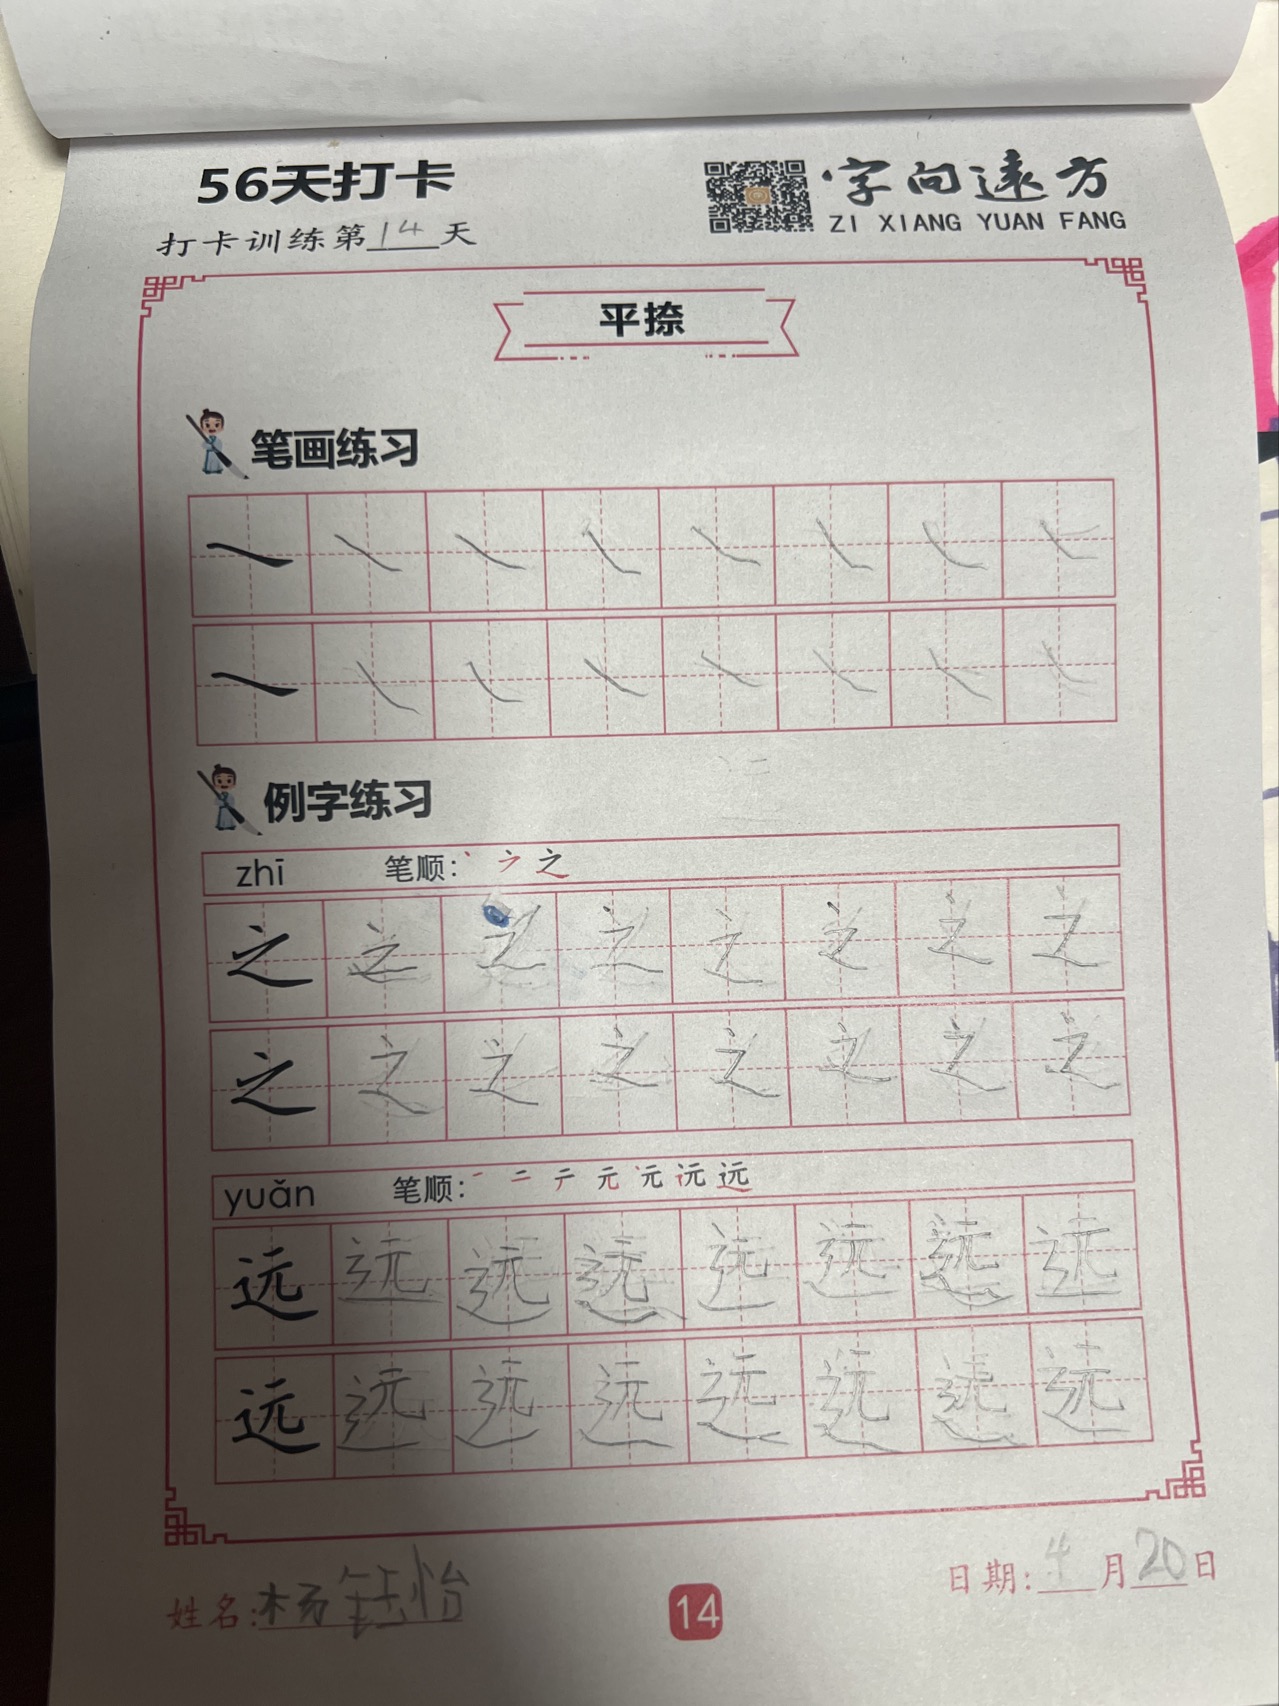 56天打卡
字向遠方
ZI XIANG YUAN FANG
打卡训练第14天
平捺
笔画练习
例字练习
zhī 笔顺: 丶 之
之 之 之 之 之 之 之 之
之 之 之 之 之 之 之 之
yuǎn 笔顺: 一 二 元 元 远
远 远 远 远 远 远 远 远
远 远 远 远 远 远 远 远
姓名:杨钰怡
14
日期:4月20日